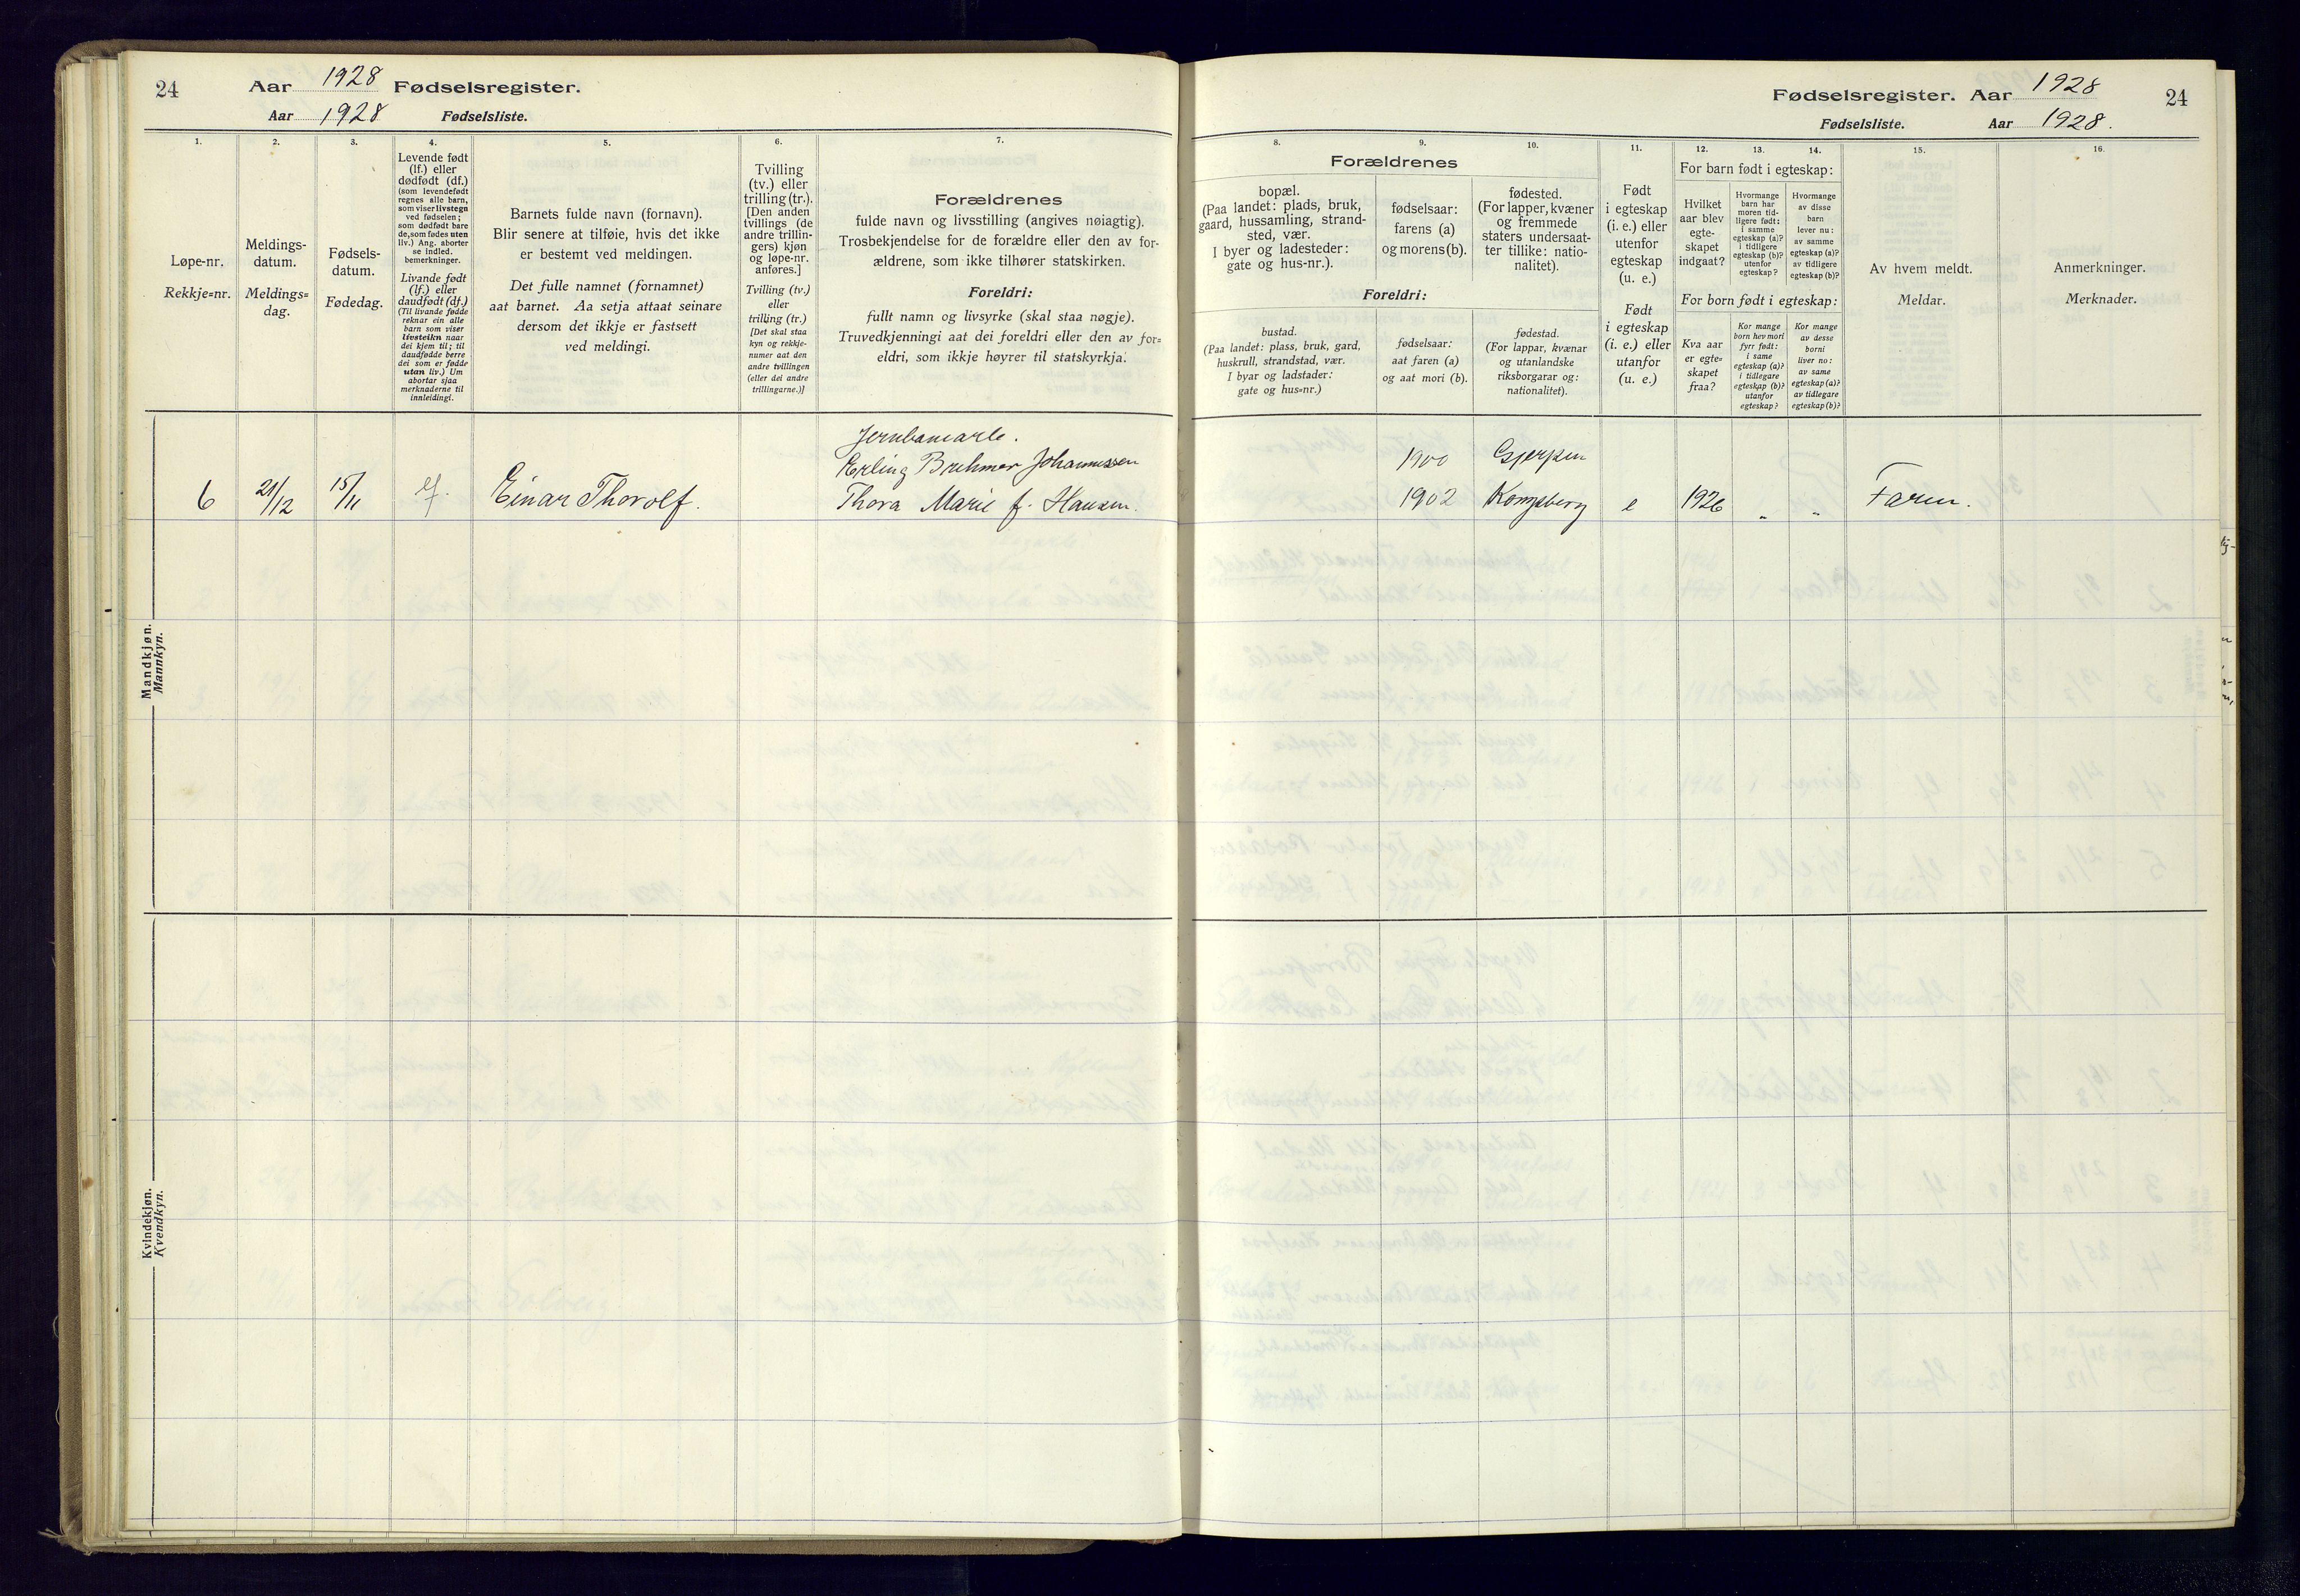 24
Aar 1928 Fødselsregister.
Aar 1928 Fødselsliste.
1.
2.
3.
4.
5.
6.
7.
Løpe-nr.
Rekkje=nr.
Meldings-
datum.
Meldings=
dag.
Fødsels-
datum.
Fødedag.
Levende født
(lf.) eller
dødfødt (df.)
(som levendefødt
regnes alle barn,
som viser livstegn
ved fødselen;
som dødfødt bare
de, som fødes uten
liv.) Ang. aborter
se indled.
bemerkninger.
Livande født
(lf.) eller
daudfødt (df.)
(Til livande fødde
reknar ein alle
barn som viser
livsteikn naar
dei kjem til; til
daudfødde berre
dei som er fødde
utan liv.) Um
abortar sjaa
merknaderne til
innleidingi.
Barnets fulde navn (fornavn).
Blir senere at tilføie, hvis det ikke
er bestemt ved meldingen.
Det fulle namnet (fornamnet)
aat barnet. Aa setja attaat seinare
dersom det ikkje er fastsett
ved meldingi.
Tvilling
(tv.) eller
trilling (tr.).
[Den anden
tvillings (de
andre trillin-
gers) kjøn
og løpe-nr.
anføres.]
Tvilling (tv.)
eller
trilling (tr.)
[Det skal staa
kyn og rekkje-
numer aat den
andre tvillingen
(eller dei andre
trillingarne.)]
Forældrenes
fulde navn og livsstilling (angives nøiagtig).
Trosbekjendelse for de forældre eller den av for-
ældrene, som ikke tilhører statskirken.
Foreldri:
fullt namn og livsyrke (skal staa nøgje).
Truvedkjenningi aat dei foreldri eller den av for=
eldri, som ikkje høyrer til statskyrkja.
Mandkjøn.
Mannkyn.
6 21/12 15/11 lf. Einar Thorolf.
Jernbanearb.
Erling Brehmer Johannessen
Thora Marie f. Hansen.
Kvindekjøn.
Kvendkyn.
Fødselsregister. Aar 1928
24
Fødselsliste. Aar 1928.
8.
9.
10.
11.
12.
13.
14.
15.
16.
Forældrenes
bopæl.
(Paa landet: plads, bruk,
gaard, hussamling, strand-
sted, vær.
I byer og ladesteder:
gate og hus-nr.).
fødselsaar:
farens (a)
og morens(b).
fødested.
(For lapper, kvæner
og fremmede
staters undersaat-
ter tillike: natio-
nalitet).
Foreldri:
bustad.
(Paa landet: plass, bruk, gard,
huskrull, strandstad, vær.
I byar og ladstader:
gate og hus=nr.)
fødselsaar:
aat faren (a)
og aat mori (b).
fødestad.
(For lappar, kvænar
og utanlandske
riksborgarar og:
nationalitet).
Født
i egteskap
(i. e.) eller
utenfor
egteskap
(u. e.)
Født
i egteskap
(i. e.) eller
utanfor
(u. e.)
For barn født i egteskap:
Hvilket
aar blev
egte-
skapet
indgaat?
Hvormange
barn har
moren tid-
ligere født:
i samme
egteskap (a)?
i tidligere
egteskap (b)?
utenfor
egteskap?
Hvormange
av disse
barn
lever nu:
av samme
egteskap (a)?
av tidligere
egteskap (b)?
For born født i egteskap:
Kva aar
er egte=
skapet
fraa?
Kor mange
born hev mori
fyrr født:
i same
egteskap (a)?
i tidlegare
egteskap (b)?
utanfor
egteskap?
Kor mange
av desse
borni
liver no:
av same
egteskap (a)?
av tidlegare
egteskap (b)?
Av hvem meldt.
Meldar.
Anmerkninger.
Merknader.
1900 Gjerpen
1902 Kongsberg e 1926 " " Faren.